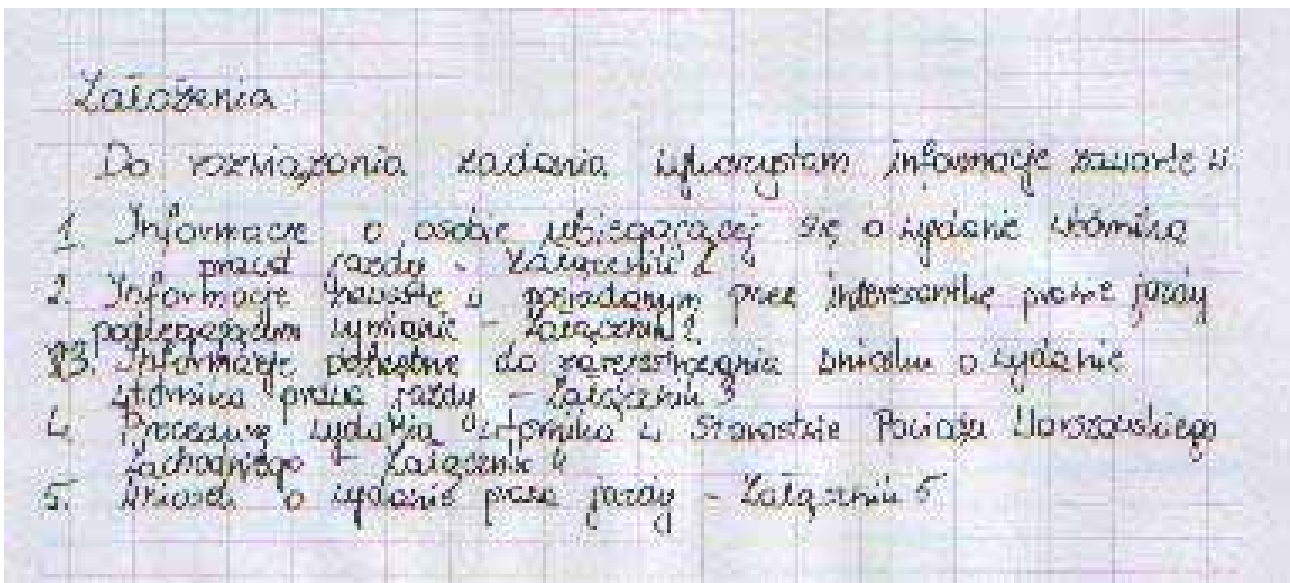 Założenia:
Do rozwiązania zadania wykorzystam informacje zawarte w:
1. Informacje o osobie ubiegającej się o wydanie wtórnika
prawa jazdy - Załącznik 1
2. Informacje zawarte w posiadanym przez interesantkę prawie jazdy
podlegającym wymianie - Załącznik 2
3. Informacje potrzebne do zarejestrowania wniosku o wydanie
wtórnika prawa jazdy - Załącznik 3
4. Procedurę wydania wtórnika w Starostwie Powiatu Warszawskiego
Zachodniego - Załącznik 4
5. Wniosek o wydanie prawa jazdy - Załącznik 5